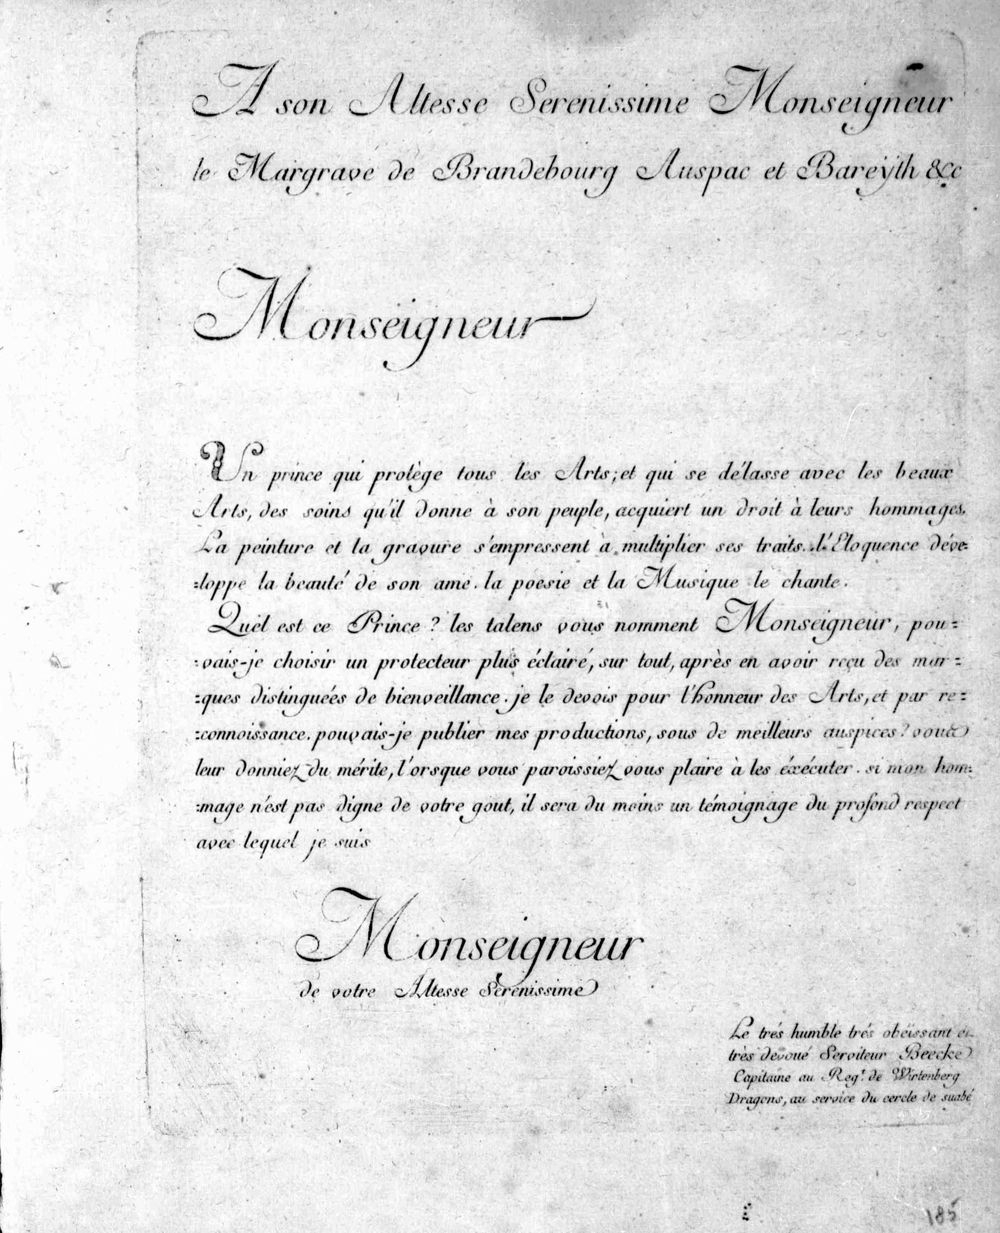 A son Altesse Serenissime Monseigneur
le Margrave de Brandebourg Auspac et Bareÿth &c
Monseigneur
Un prince qui protège tous les Arts; et qui se délasse avec les beaux
Arts, des soins qu'il donne à son peuple, acquiert un droit à leurs hommages.
La peinture et la gravure s'empressent à multiplier ses traits. l'Eloquence déve-
-loppe la beauté de son ame. la poesie et la Musique le chante.
Quel est ce Prince? les talens vous nomment Monseigneur, pou=
-vais-je choisir un protecteur plus éclairé, sur tout, après en avoir reçu des mar-
-ques distinguées de bienveillance. je le devois pour l'honneur des Arts, et par re=
=connoissance. pouvais-je publier mes productions, sous de meilleurs auspices? vous
leur donniez du mérite, l'orsque vous paroissiez vous plaire à les éxécuter. si mon hom-
-mage n'est pas digne de votre gout, il sera du moins un témoignage du profond respect
avec lequel je suis
Monseigneur
de votre Altesse Serenissime
Le trés humble trés obéissant et
très devoué Serviteur Beecke
Capitaine au Regt. de Wirtenberg
Dragons, au service du cercle de suabé
185